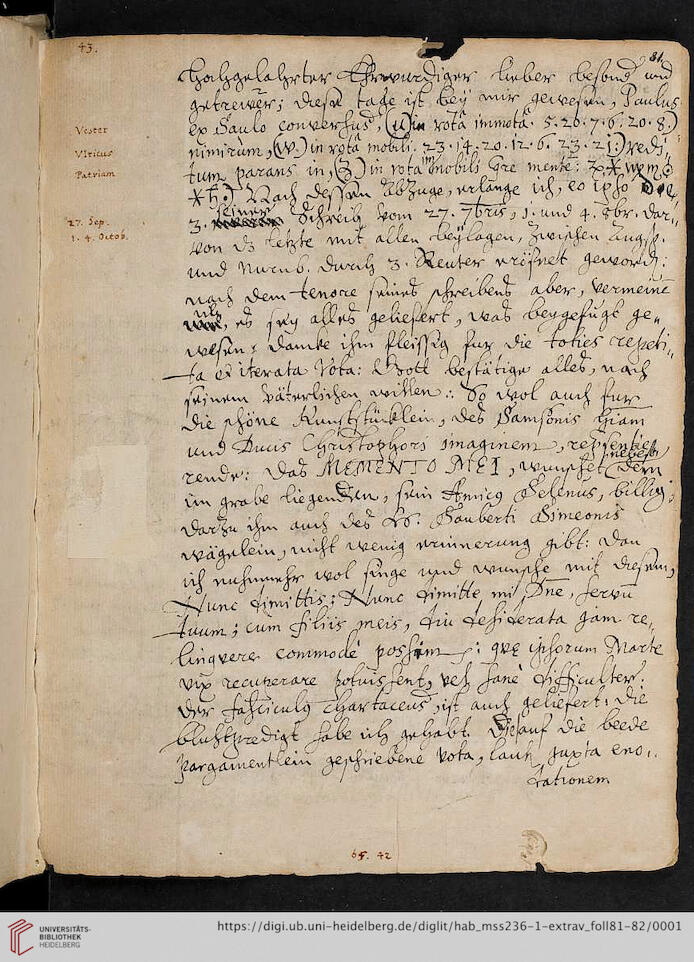 43.
81
Hochgelahrter Ehrwurdiger lieber besond und
getrewer; diese tage ist bey mir gewesen, Paulus
ex Saulo conversus, (u) in rotâ immotâ. 5. 26. 7. 6. 20. 8.)
Vester
nimirum, (W.) in rotâ mobili. 23. 14. 20. 12. 6. 23. 21:) redi-
Vlricus
tum parans in, (Z) in rota im mobili
Patriam
Nach dessen Abzuge, erlange ich, eo ipso
3. seiner Schreiben vom 27. 7bris, 1. und 4. 8br. dar-
27. Sep.
1. 4. Octob.
von dz letzte mit allen beylagen, zwischen Augsp.
und Nurnb. durch 3. Reuter eröfnet geword:
nach dem tenore seines schreibens aber, vermeine
ich, es sey alles geliefert, was beygefügt ge-
wesen; dancke ihm fleissig fur die toties repeti-
ta et iterata Vota: Gott bestätige alles, nach
seinem väterlichen willen: So wol auch fur
die schöne Kunststücklein, des Samsonis
und Ducis Christophori imaginem, repsentie-
rende: das MEMENTO MEI, wunschet nebest dem
im grabe liegenden, sein Amicus Selenus, billig;
darzu ihm auch des Sauberti Simeonis
wägelein, nicht wenig erinnerung gibt: dan
ich nuhnmehr wol singe und wunsche mit diesem,
Nunc dimittis: Nunc dimitte mi Dne, servu
tuum; cum filiis meis, diu desiderata jam re-
linquere commodè possim: quæ ipsorum Marte
vix recuperare potuissent, vel sanè difficulter.
der fasciculus chartaceus, ist auch geliefert: die
bluhtpredigt habe ich gehabt. Diesauf die beede
Pargamentlein geschriebene vota, lauth juxta eno-
dationem
65. 42
UNIVERSITÄTS-
BIBLIOTHEK
HEIDELBERG
https://digi.ub.uni-heidelberg.de/diglit/hab_mss236-1-extrav_foll81-82/0001